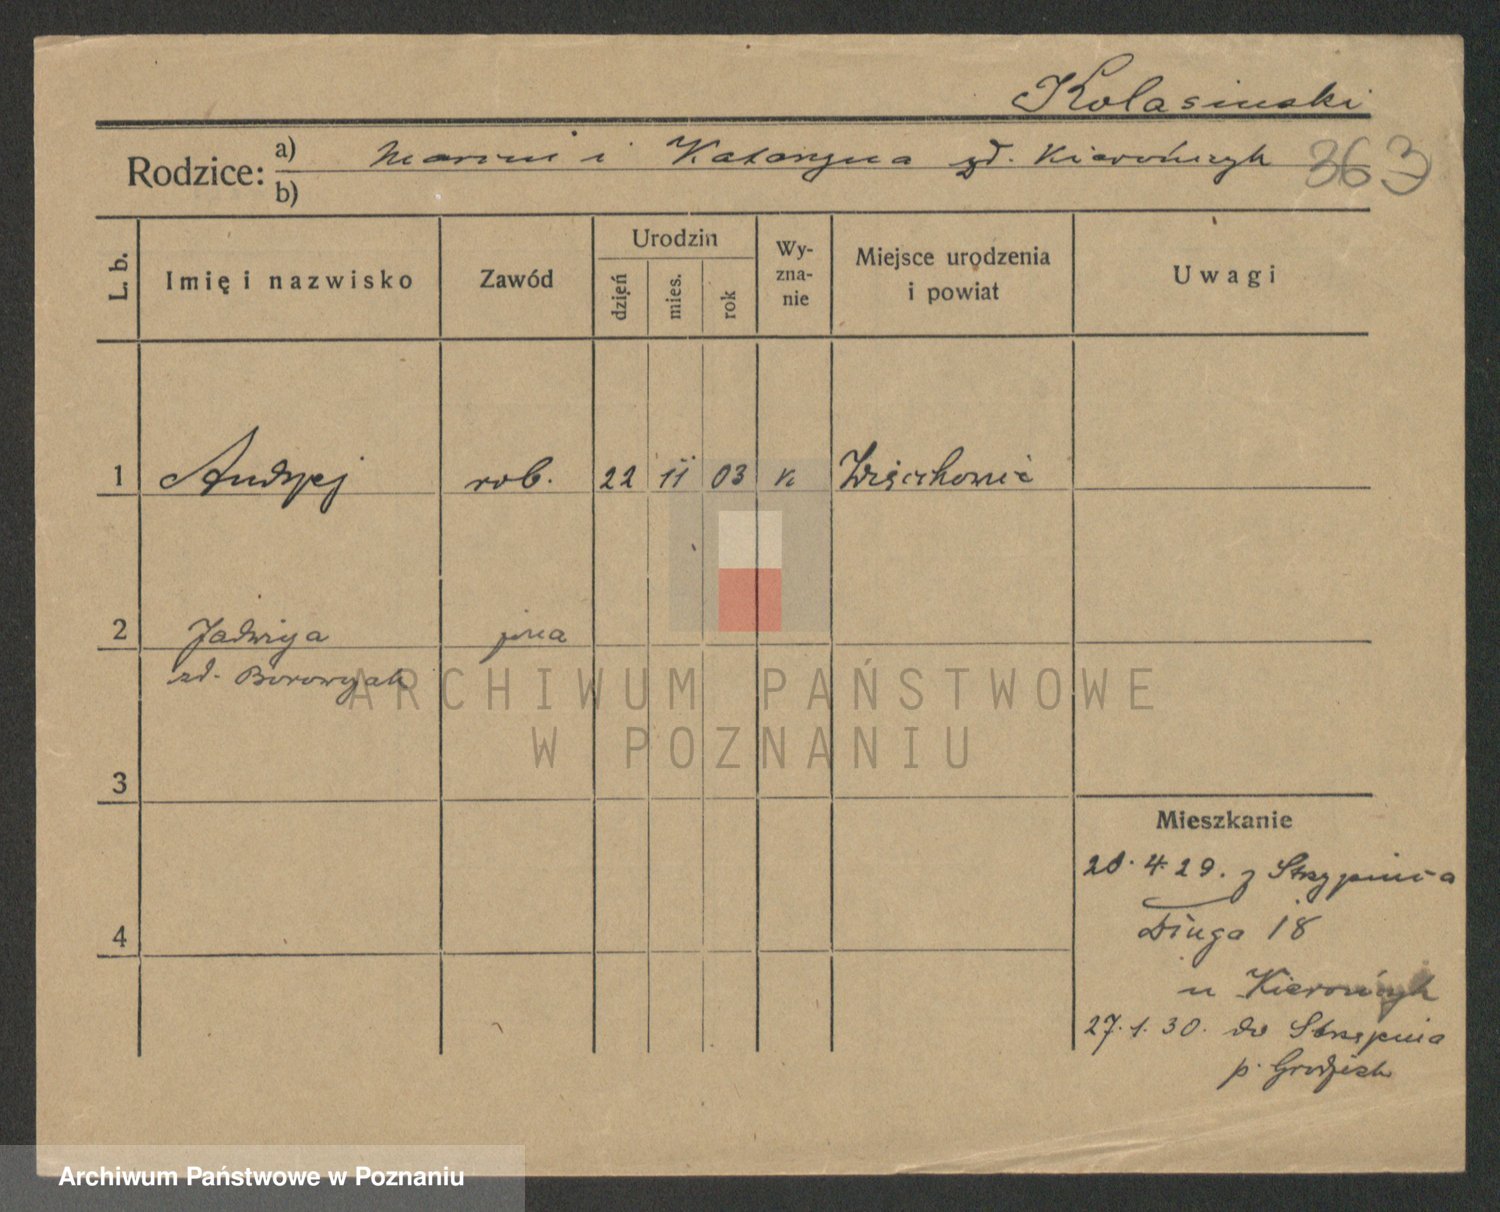 Kolasinski
Rodzice: a) Marcin i Katarzyna zd. Kierończyk 363
b)
L. b. Imię i nazwisko Zawód Urodzin dzień mies. rok Wy-zna-nie Miejsce urodzenia i powiat Uwagi
1 Andrzej rob. 22 11 03 k
2 Jadwiga żona
zd. Borowczak
3
Mieszkanie
4.29. z Strzępinia
4 Długa 18
u Kierończyk
27.1.30. do Strzępinia
p. Grodzisk
ARCHIWUM PAŃSTWOWE
W POZNANIU
Archiwum Państwowe w Poznaniu